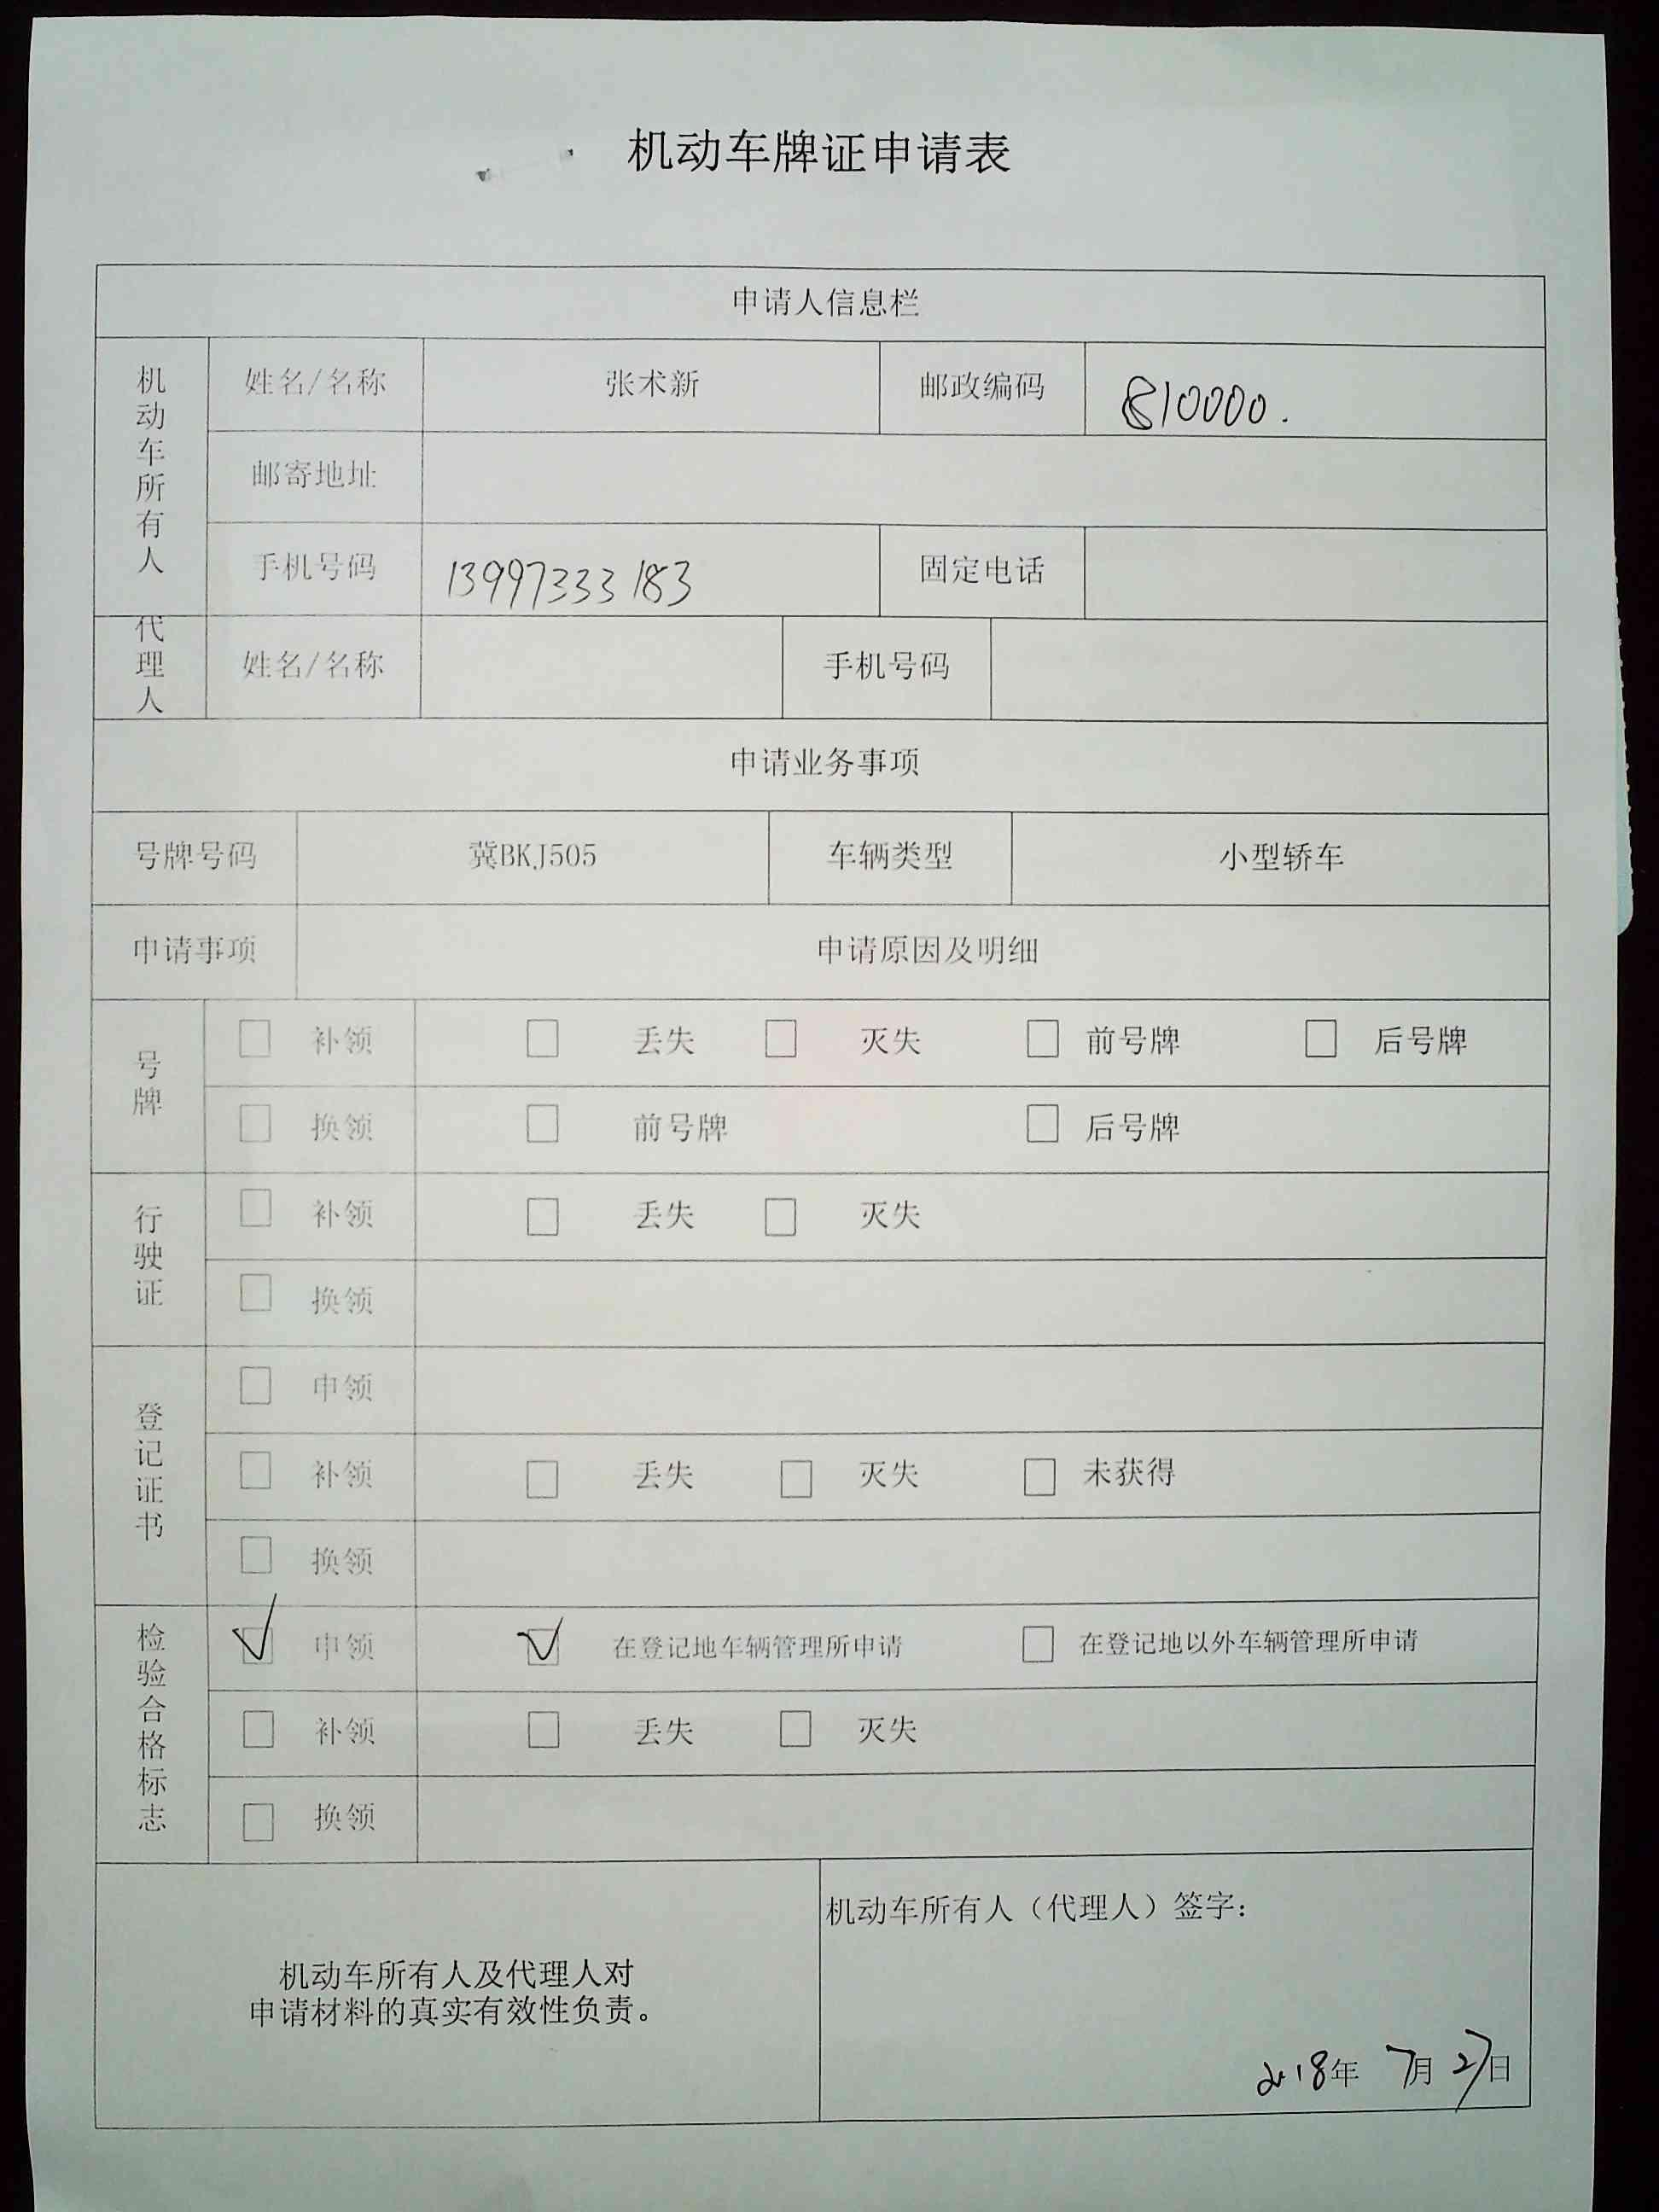 机动车牌证申请表
申请人信息栏
机动车所有人
姓名/名称 张术新 邮政编码 810000.
邮寄地址
手机号码 13997333183 固定电话
代理人
姓名/名称 手机号码
申请业务事项
号牌号码 冀BKJ505 车辆类型 小型轿车
申请事项 申请原因及明细
号牌
□ 补领 □ 丢失 □ 灭失 □ 前号牌 □ 后号牌
□ 换领 □ 前号牌 □ 后号牌
行驶证
□ 补领 □ 丢失 □ 灭失
□ 换领
登记证书
□ 申领
□ 补领 □ 丢失 □ 灭失 □ 未获得
□ 换领
检验合格标志
☑ 申领 ☑ 在登记地车辆管理所申请 □ 在登记地以外车辆管理所申请
□ 补领 □ 丢失 □ 灭失
□ 换领
机动车所有人及代理人对
申请材料的真实有效性负责。
机动车所有人（代理人）签字：
2018年 7月27日